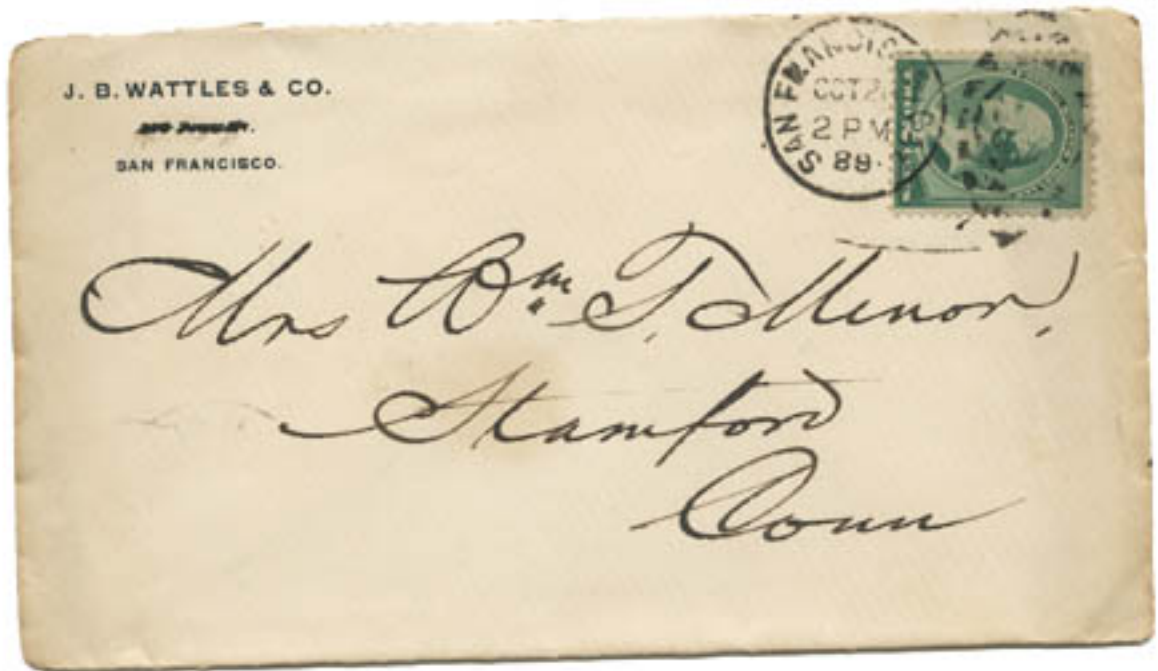 J. B. WATTLES & CO.
SAN FRANCISCO.
SAN FRANCISC
OCT 2
2 PM
88
Mrs Wm T. Minor,
Stamford
Conn